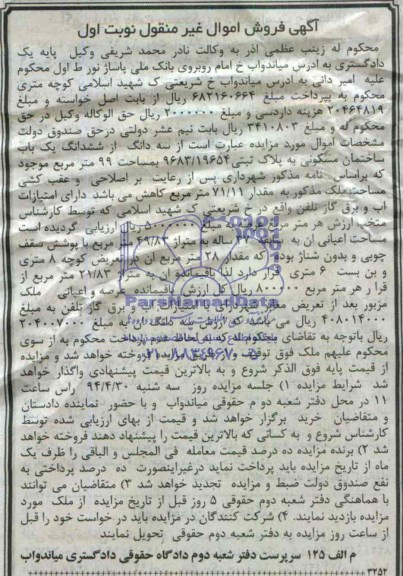 آگهی فروش اموال غیر منقول نوبت اول
محکوم له زینب عظمی آذر به وکالت نادر محمد شریفی وکیل پایه یک
دادگستری به ادرس میاندواب خ امام روبروی بانک ملی پاساژ نور ط اول محکوم
علیه امیر دانی به ادرس میاندواب خ شریعتی ک شهید اسلامی کوچه متری
محکوم به پرداخت مبلغ ۶۸۲۱۶۰۶۶۴ ریال از بابت اصل خواسته و مبلغ
۲۰۴۶۴۸۱۹ هزینه دادرسی و مبلغ ۲۰۰۰۰۰۰ ریال حق الوکاله وکیل در حق
محکوم له و مبلغ ۳۴۱۰۸۰۳ ریال بابت نیم عشر دولتی درحق صندوق دولت
مشخصات اموال مورد مزایده عبارت است از سه دانگ از ششدانگ یک باب
ساختمان مسکونی به پلاک ثبتی ۹۶۸۳/۱۹۶۵۴ بمساحت ۹۹ متر مربع موجود
که براساس نامه مذکور شهرداری پس از رعایت بر اصلاحی و عقب کشی
مساحت ملک مذکور به مقدار ۷۱/۱۱ متر مربع کاهش می باشد دارای امتیازات
اب و برق گاز تلفن واقع در خ شریعتی ک شهید اسلامی که توسط کارشناس
منتخب ارزش هر متر مربع ریال ارزیابی گردیده است
مساحت اعیانی ان به ساله به متراژ متر مربع با پوشش سقف
چوبی و بدون شناژ بوده که مقدار ۲۸ متر مربع ان در تعریض کوچه ۸ متری
و بن بست ۶ متری قرار دارد لذا باقیمانده ان به متراژ ۲۱/۸۳ متر مربع از
قرار هر متر مربع ریال کل ارزش باقیمانده عرصه و اعیانی ملک
مزبور بعد از تعریض معابر شهرداری و برق گاز تلفن به مبلغ
۴۰۸۰۱۴۰۰۰ ریال می باشد که ارزش سه دانگ ان به مبلغ ۲۰۴۰۰۷۰۰۰
ریال باتوجه به تقاضای محکوم له که به لحاظ عدم پرداخت محکوم به از سوی
محکوم علیهم ملک فوق توقیف فروخته خواهد شد و مزایده
از قیمت پایه فوق الذکر شروع و به بالاترین قیمت پیشنهادی واگذار خواهد
شد شرایط مزایده ۱) جلسه مزایده روز سه شنبه ۹۴/۴/۳۰ راس ساعت
۱۱ در محل دفتر شعبه دوم حقوقی میاندواب و با حضور نماینده دادستان
و متقاضیان خرید برگزار خواهد شد و قیمت از بهای ارزیابی شده توسط
کارشناس شروع و به کسانی که بالاترین قیمت را پیشنهاد دهند فروخته خواهد
شد ۲) برنده مزایده ده درصد قیمت معامله فی المجلس و الباقی را ظرف یک
ماه از تاریخ مزایده باید پرداخت نماید درغیراینصورت ده درصد پرداختی به
نفع صندوق دولت ضبط و مزایده تجدید خواهد شد ۳) متقاضیان می توانند
با هماهنگی دفتر شعبه دوم حقوقی ۵ روز قبل از تاریخ مزایده از ملک مورد
مزایده بازدید نمایند. ۴) شرکت کنندگان در مزایده باید در خواست خود را قبل
از ساعت روز مزایده به دفتر شعبه دوم حقوقی تحویل نمایند
م الف ۱۲۵ سرپرست دفتر شعبه دوم دادگاه حقوقی دادگستری میاندواب
۳۲۵۲
ParsNamadData
۰۲۱-۸۸۳۴۹۶۷۰